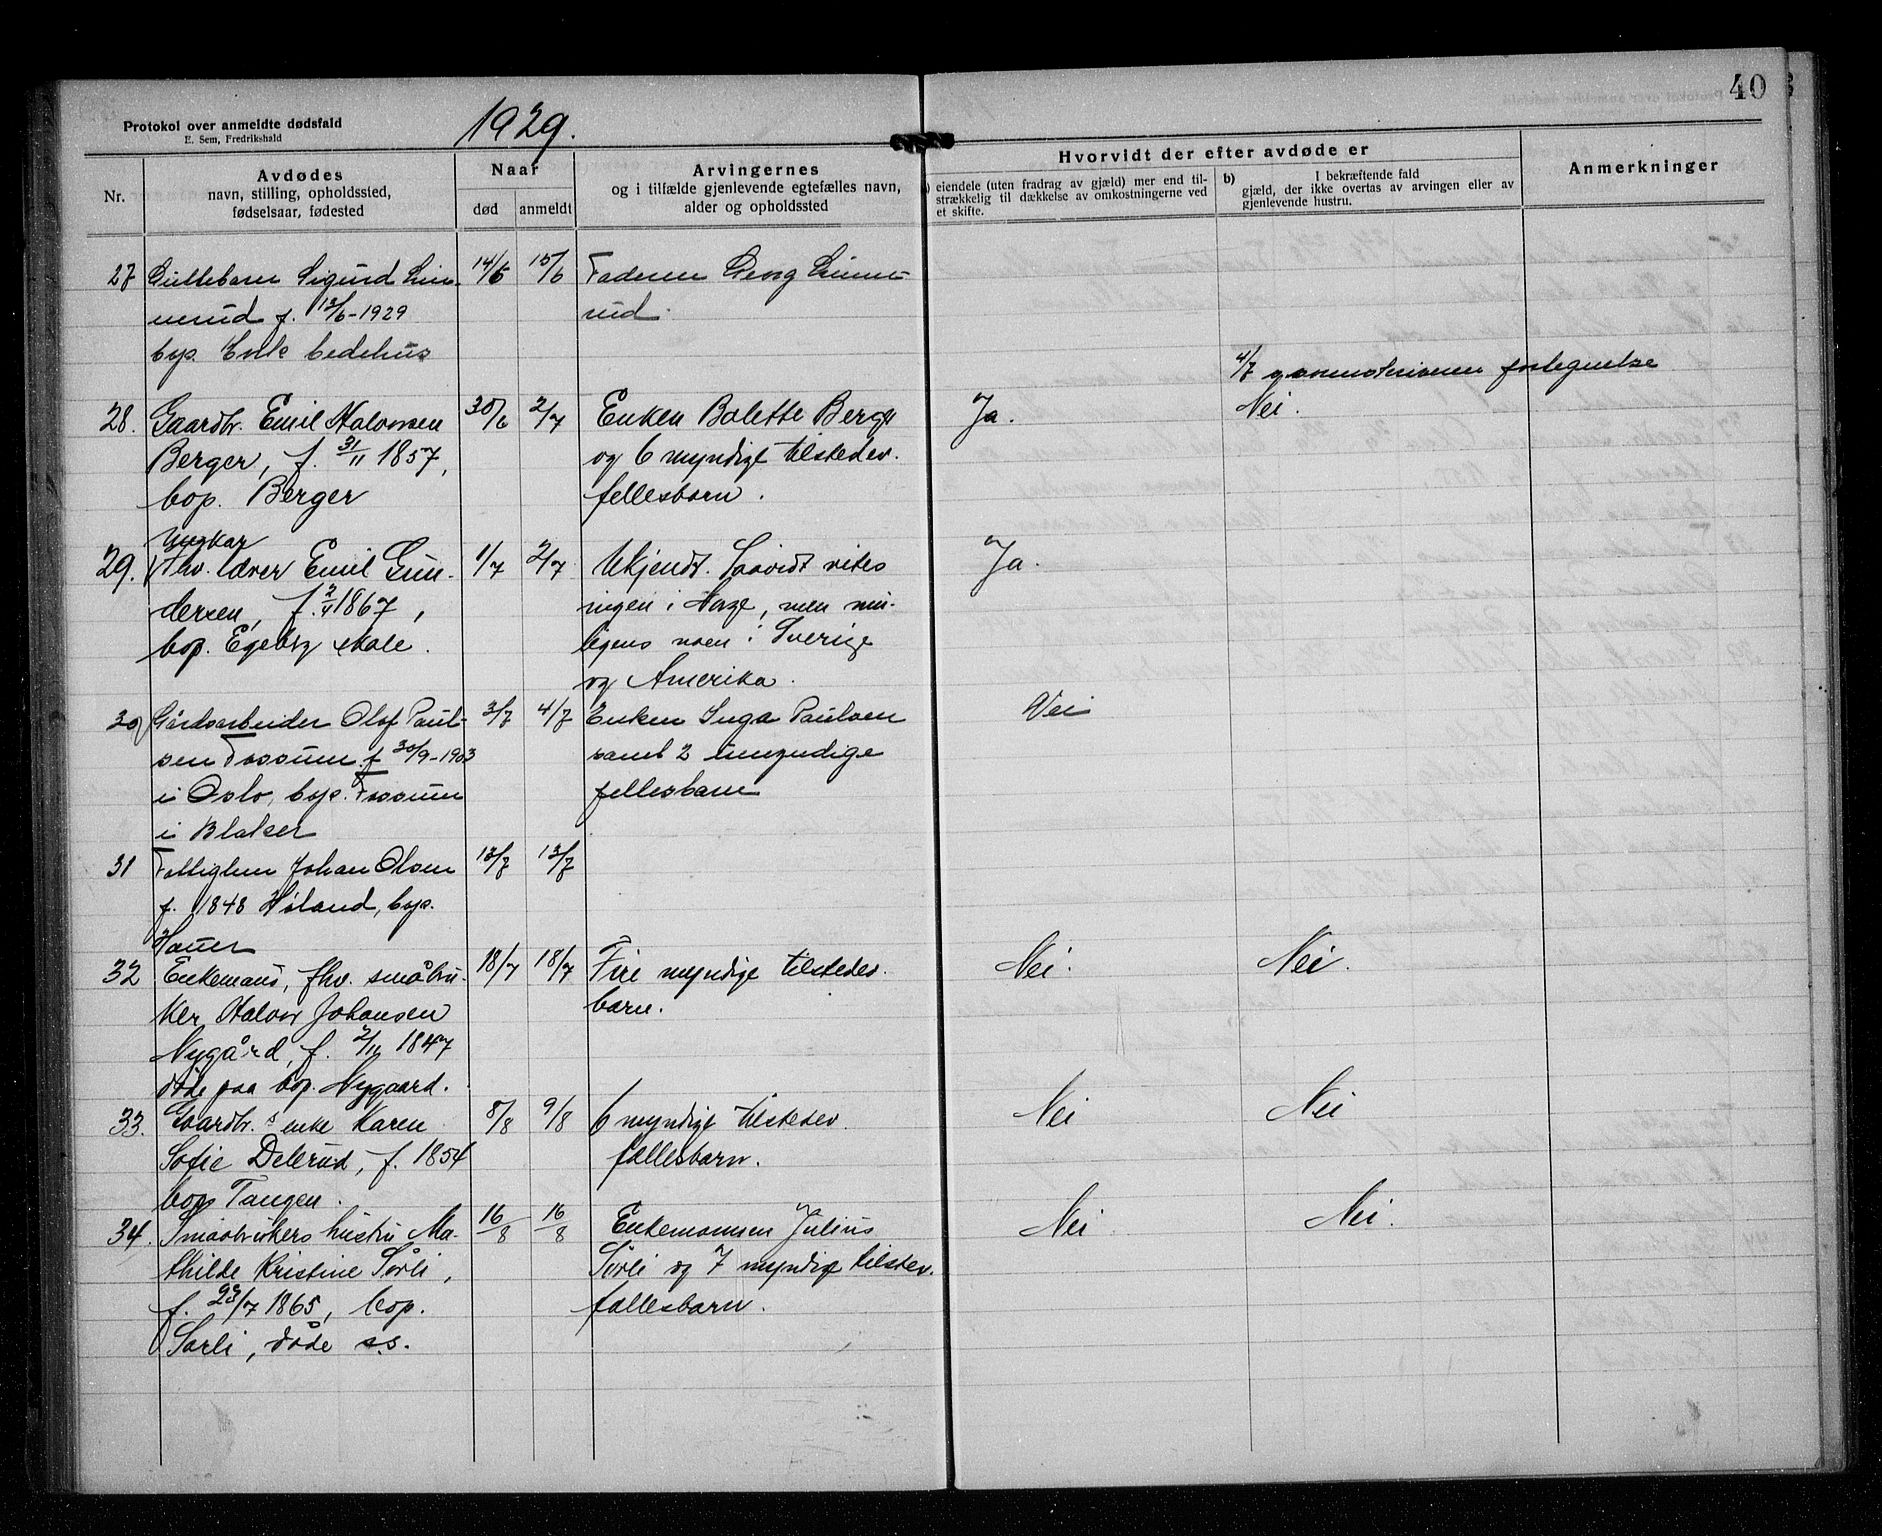 40
Protokol over anmeldte dødsfald
E. Sem, Fredrikshald
1929.
Nr.
Avdødes
navn, stilling, opholdssted,
fødselsaar, fødested
Naar
død
anmeldt
Arvingernes
og i tilfælde gjenlevende egtefælles navn,
alder og opholdssted
Hvorvidt der efter avdøde er
eiendele (uten fradrag av gjæld) mer end til-
strækkelig til dækkelse av omkostningerne ved
et skifte.
b) I bekræftende fald
gjæld, der ikke overtas av arvingen eller av
gjenlevende hustru.
Anmerkninger
27 Guttebarn Sigurd Lin- 14/6 15/6 Faderen Georg Linne-
nerud f. 13/6-1929 rud.
bop. bedehus
4/7 forlegnelse
28. Gaardbr. Emil Halvorsen 30/6 2/7 Enken Bolette Berger Ja. Nei.
Berger, f. 31/11 1857, og 6 myndige tilstedev.
bop. Berger fellesbarn.
Ungkar
29. fhv. lærer Emil Gun- 1/7 2/7 Ukjendt. Saavidt vites Ja.
dersen, f. 2/4 1867, ingen i Norge, men mu-
bop. Egeberg skole. ligens noen i Sverige
og Amerika.
30 Gårdsarbeider Olof Paul- 3/7 4/7 Enken Inga Paulsen Nei
sen Fossum f 30/9-1903 samt 2 umyndige
i Oslo, bop. Fossum fellesbarn
i Blaker
31 Fattiglem Johan Olsen 13/7 13/7
f. 1848 Høland, bop.
Hauer
32 Enkemand, fhv. småbru- 18/7 18/7 Fire myndige tilstedev. Nei. Nei.
ker Halvor Johansen barn.
Nygård, f. 2/11 1847
døde paa bop. Nygaard.
33. Gaardbr.s enke Karen 8/8 9/8 6 myndige tilstedev. Nei Nei
Sofie Delerud, f. 1854 fællesbarn.
bop Tangen.
34. Smaabrukers hustru Ma- 16/8 16/8 Enkemannen Julius Nei Nei.
thilde Kristine Sørli, Sørli og 7 myndige tilstev.
f. 23/7 1865, bop. fællesbarn.
Sørli, døde s.s.